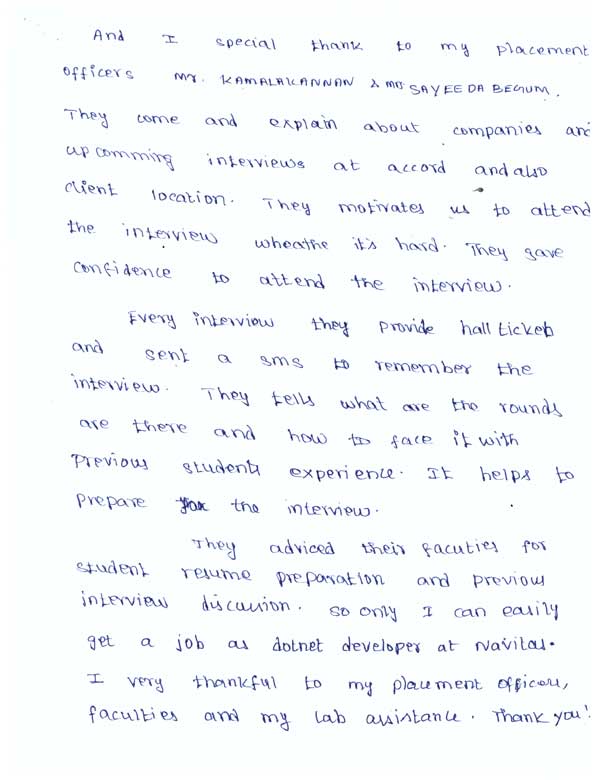 And I special thank to my placement
officers Mr. KAMALAKANNAN & MRS SAYEEDA BEGUM.
They come and explain about companies and
upcomming interviews at accord and also
client location. They motivates us to attend
the interview wheathe it's hard. They gave
confidence to attend the interview.
Every interview they provide hall tickets
and sent a sms to remember the
interview. They tells what are the rounds
are there and how to face it with
previous students experience. It helps to
prepare for the interview.
They adviced their facuties for
student resume preparation and previous
interview discussion. so only I can easily
get a job as dotnet developer at Navitas.
I very thankful to my placement officers,
faculties and my lab assistance. Thank you!